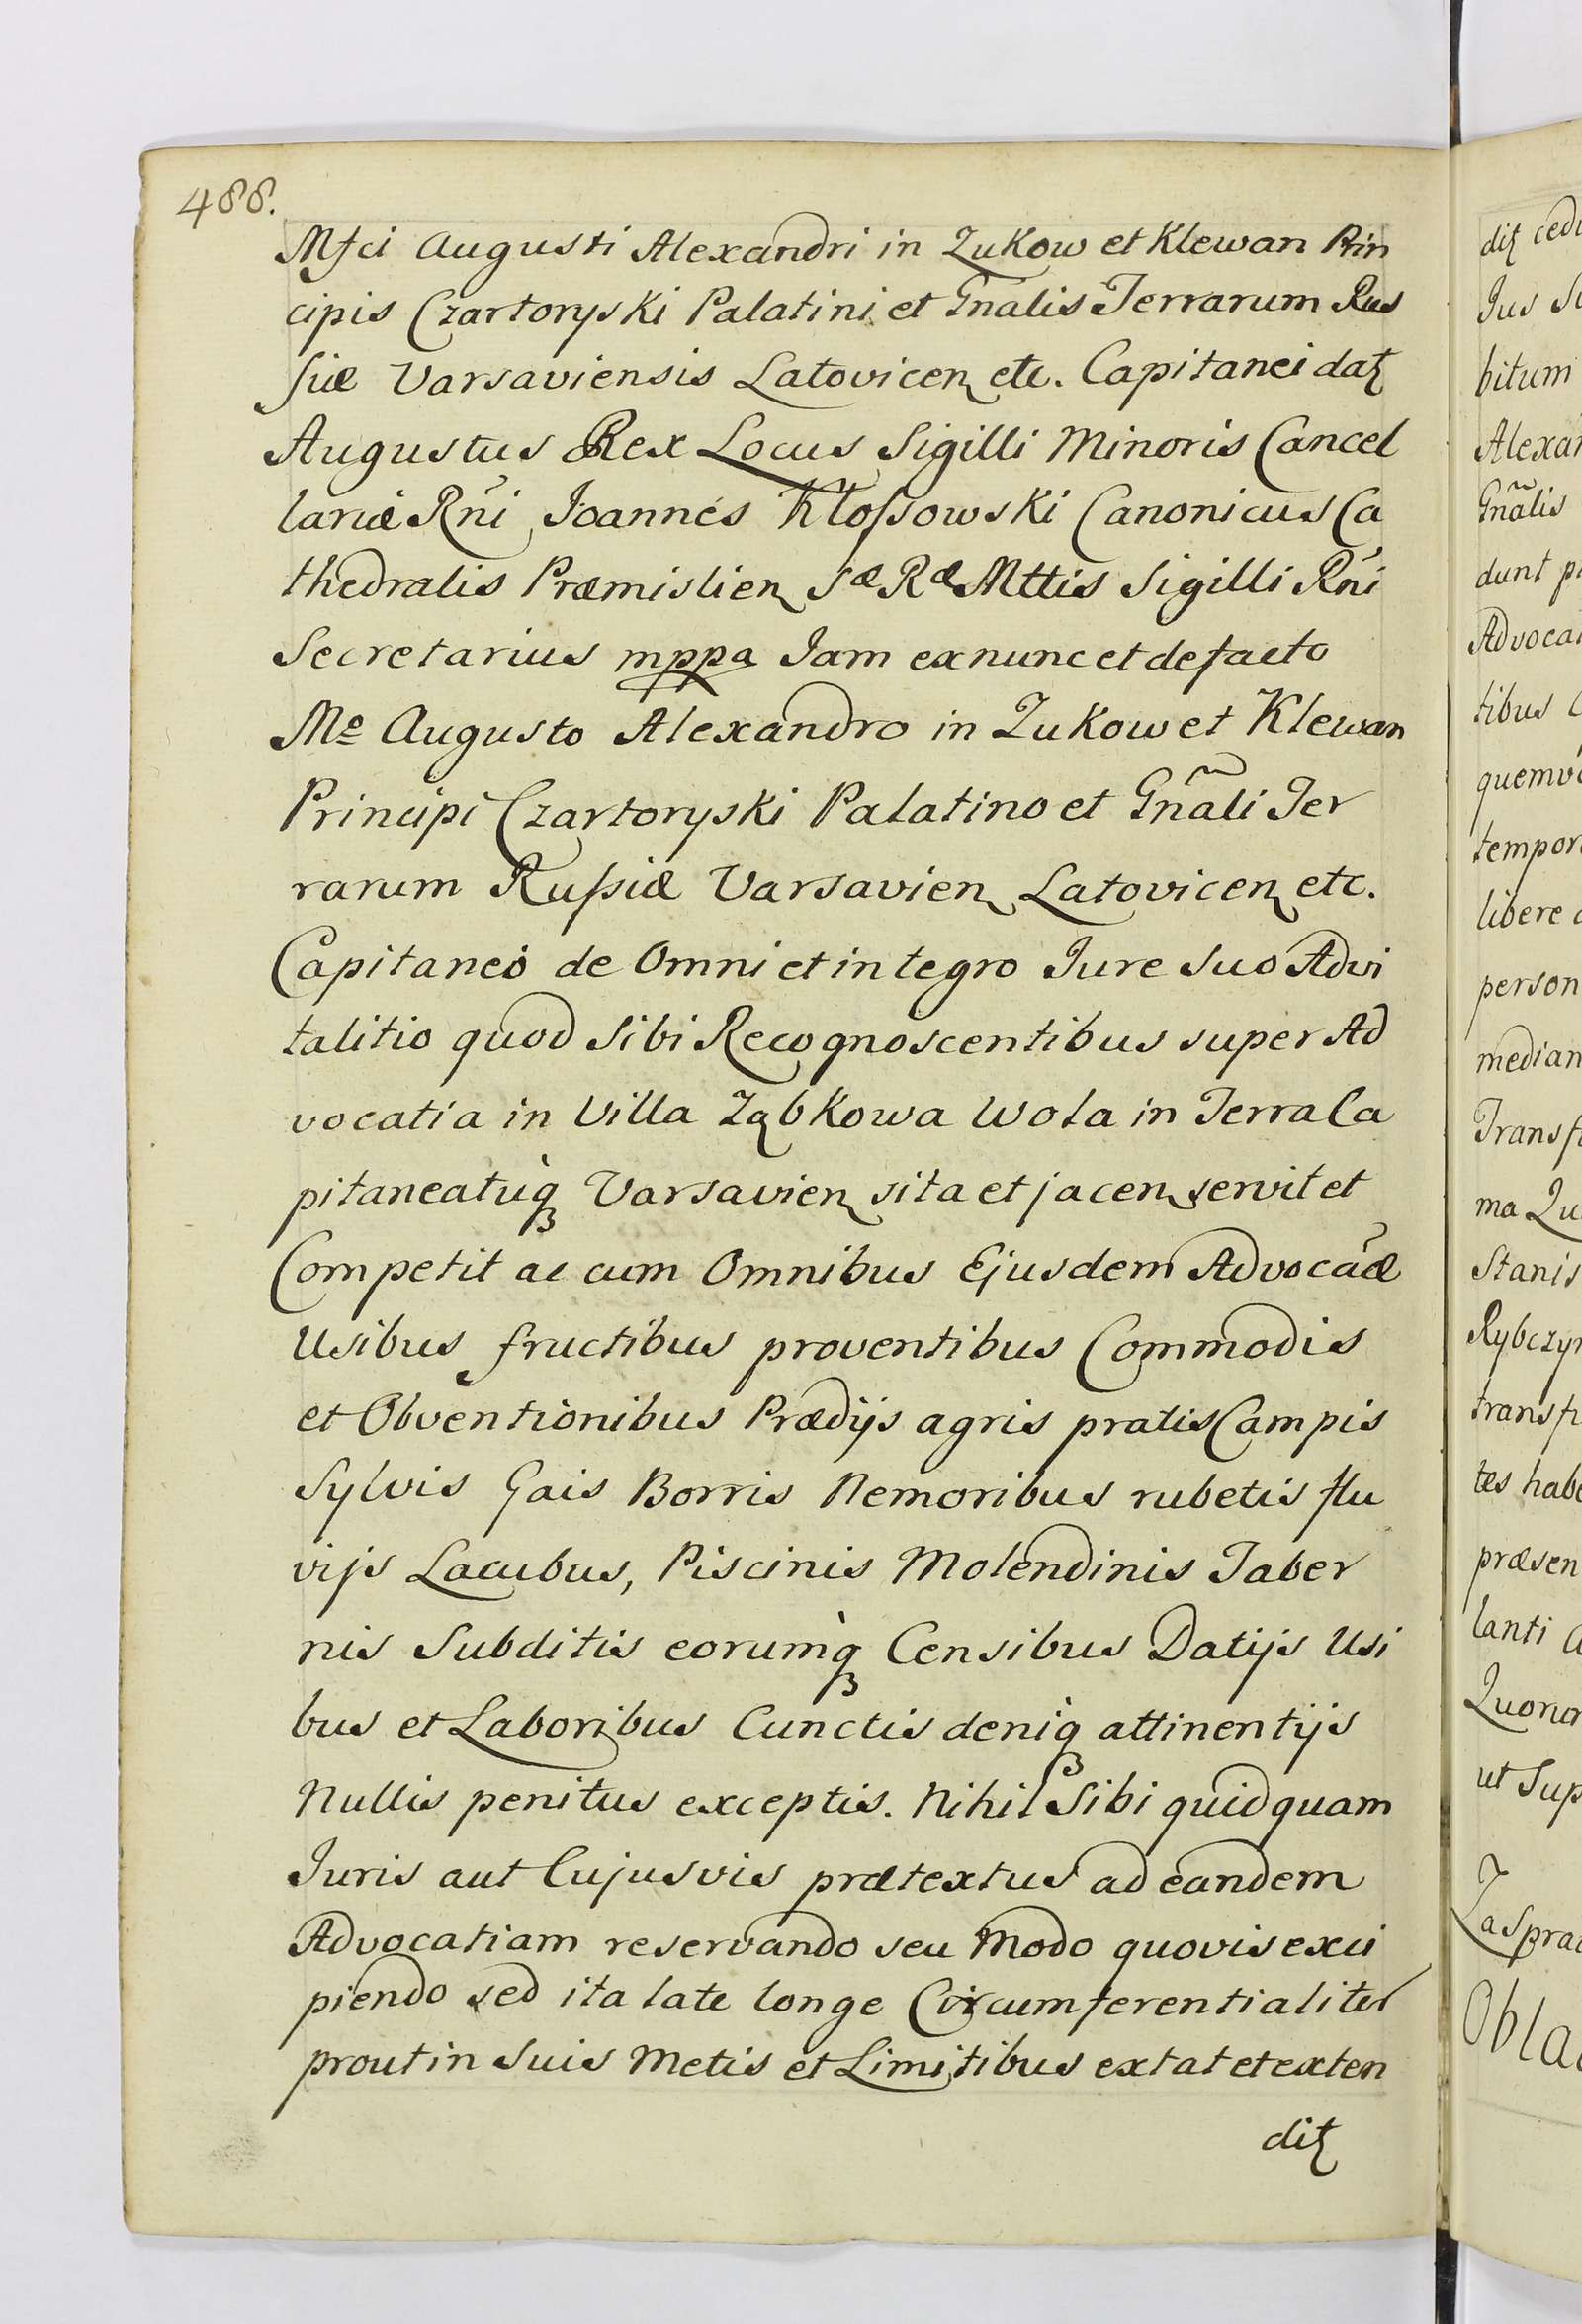 488.
Mfci Augusti Alexandri in Zukow et Klewan Prin
cipis Czartoryski Palatini et Gnalis Terrarum Rus
siæ Varsaviensis Latovicen etc. Capitanei datꝫ
Augustus Rex Locus Sigilli Minoris Cancel
lariæ Rñi Joannes Kłossowski Canonicus Ca
thedralis Præmislien Sæ Ræ Mttis Sigilli Rñi
Secretarius mppa Jam exnunc et defacto
Mo Augusto Alexandro in Zukow et Klewan
Principi Czartoryski Palatino et Gñali Ter
rarum Russiæ Varsavien Latovicen etc.
Capitaneo de Omni et integro Jure suo Advi
talitio quod sibi Recognoscentibus super Ad
vocatia in Villa Ząbkowa Wola in Terra Ca
pitaneatuq̀ꝫ Varsavien sita et jacen servit et
Competit ac cum Omnibus Ejusdem Advocãæ
Usibus fructibus proventibus Commodis
et Obventionibus Prædijs agris pratis Campis
Sylvis Gais Borris Nemoribus rubetis flu
vijs Lacubus, Piscinis Molendinis Taber
nis Subditis eorumq̀ꝫ Censibus Datijs Usi
bus et Laboribus Cunctis deniq̀ꝫ attinentijs
Nullis penitus exceptis. Nihil Sibi quidquam
Juris aut Cujusvis prætextus ad eandem
Advocatiam reservando seu Modo quovis exci
piendo sed ita late longe Circumferentialiter
prout in suis Metis et Limitibus extat et exten
ditꝫ
ditꝫ
Jus
bitum
Gñalis
dunt
tibus
libere
person
ma
Stanis
lanti
ut Sup